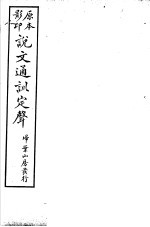 原本
影印
說文通訓定聲
掃葉山房發行